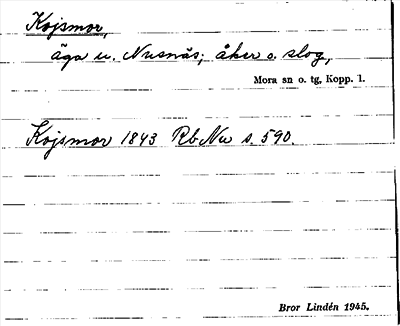 Kojsmor,
äga u. Nusnäs; åker o. slog,
Mora sn o. tg, Kopp. l.
Kojsmor 1843 Rb Nu s. 590.
Bror Lindén 1945.